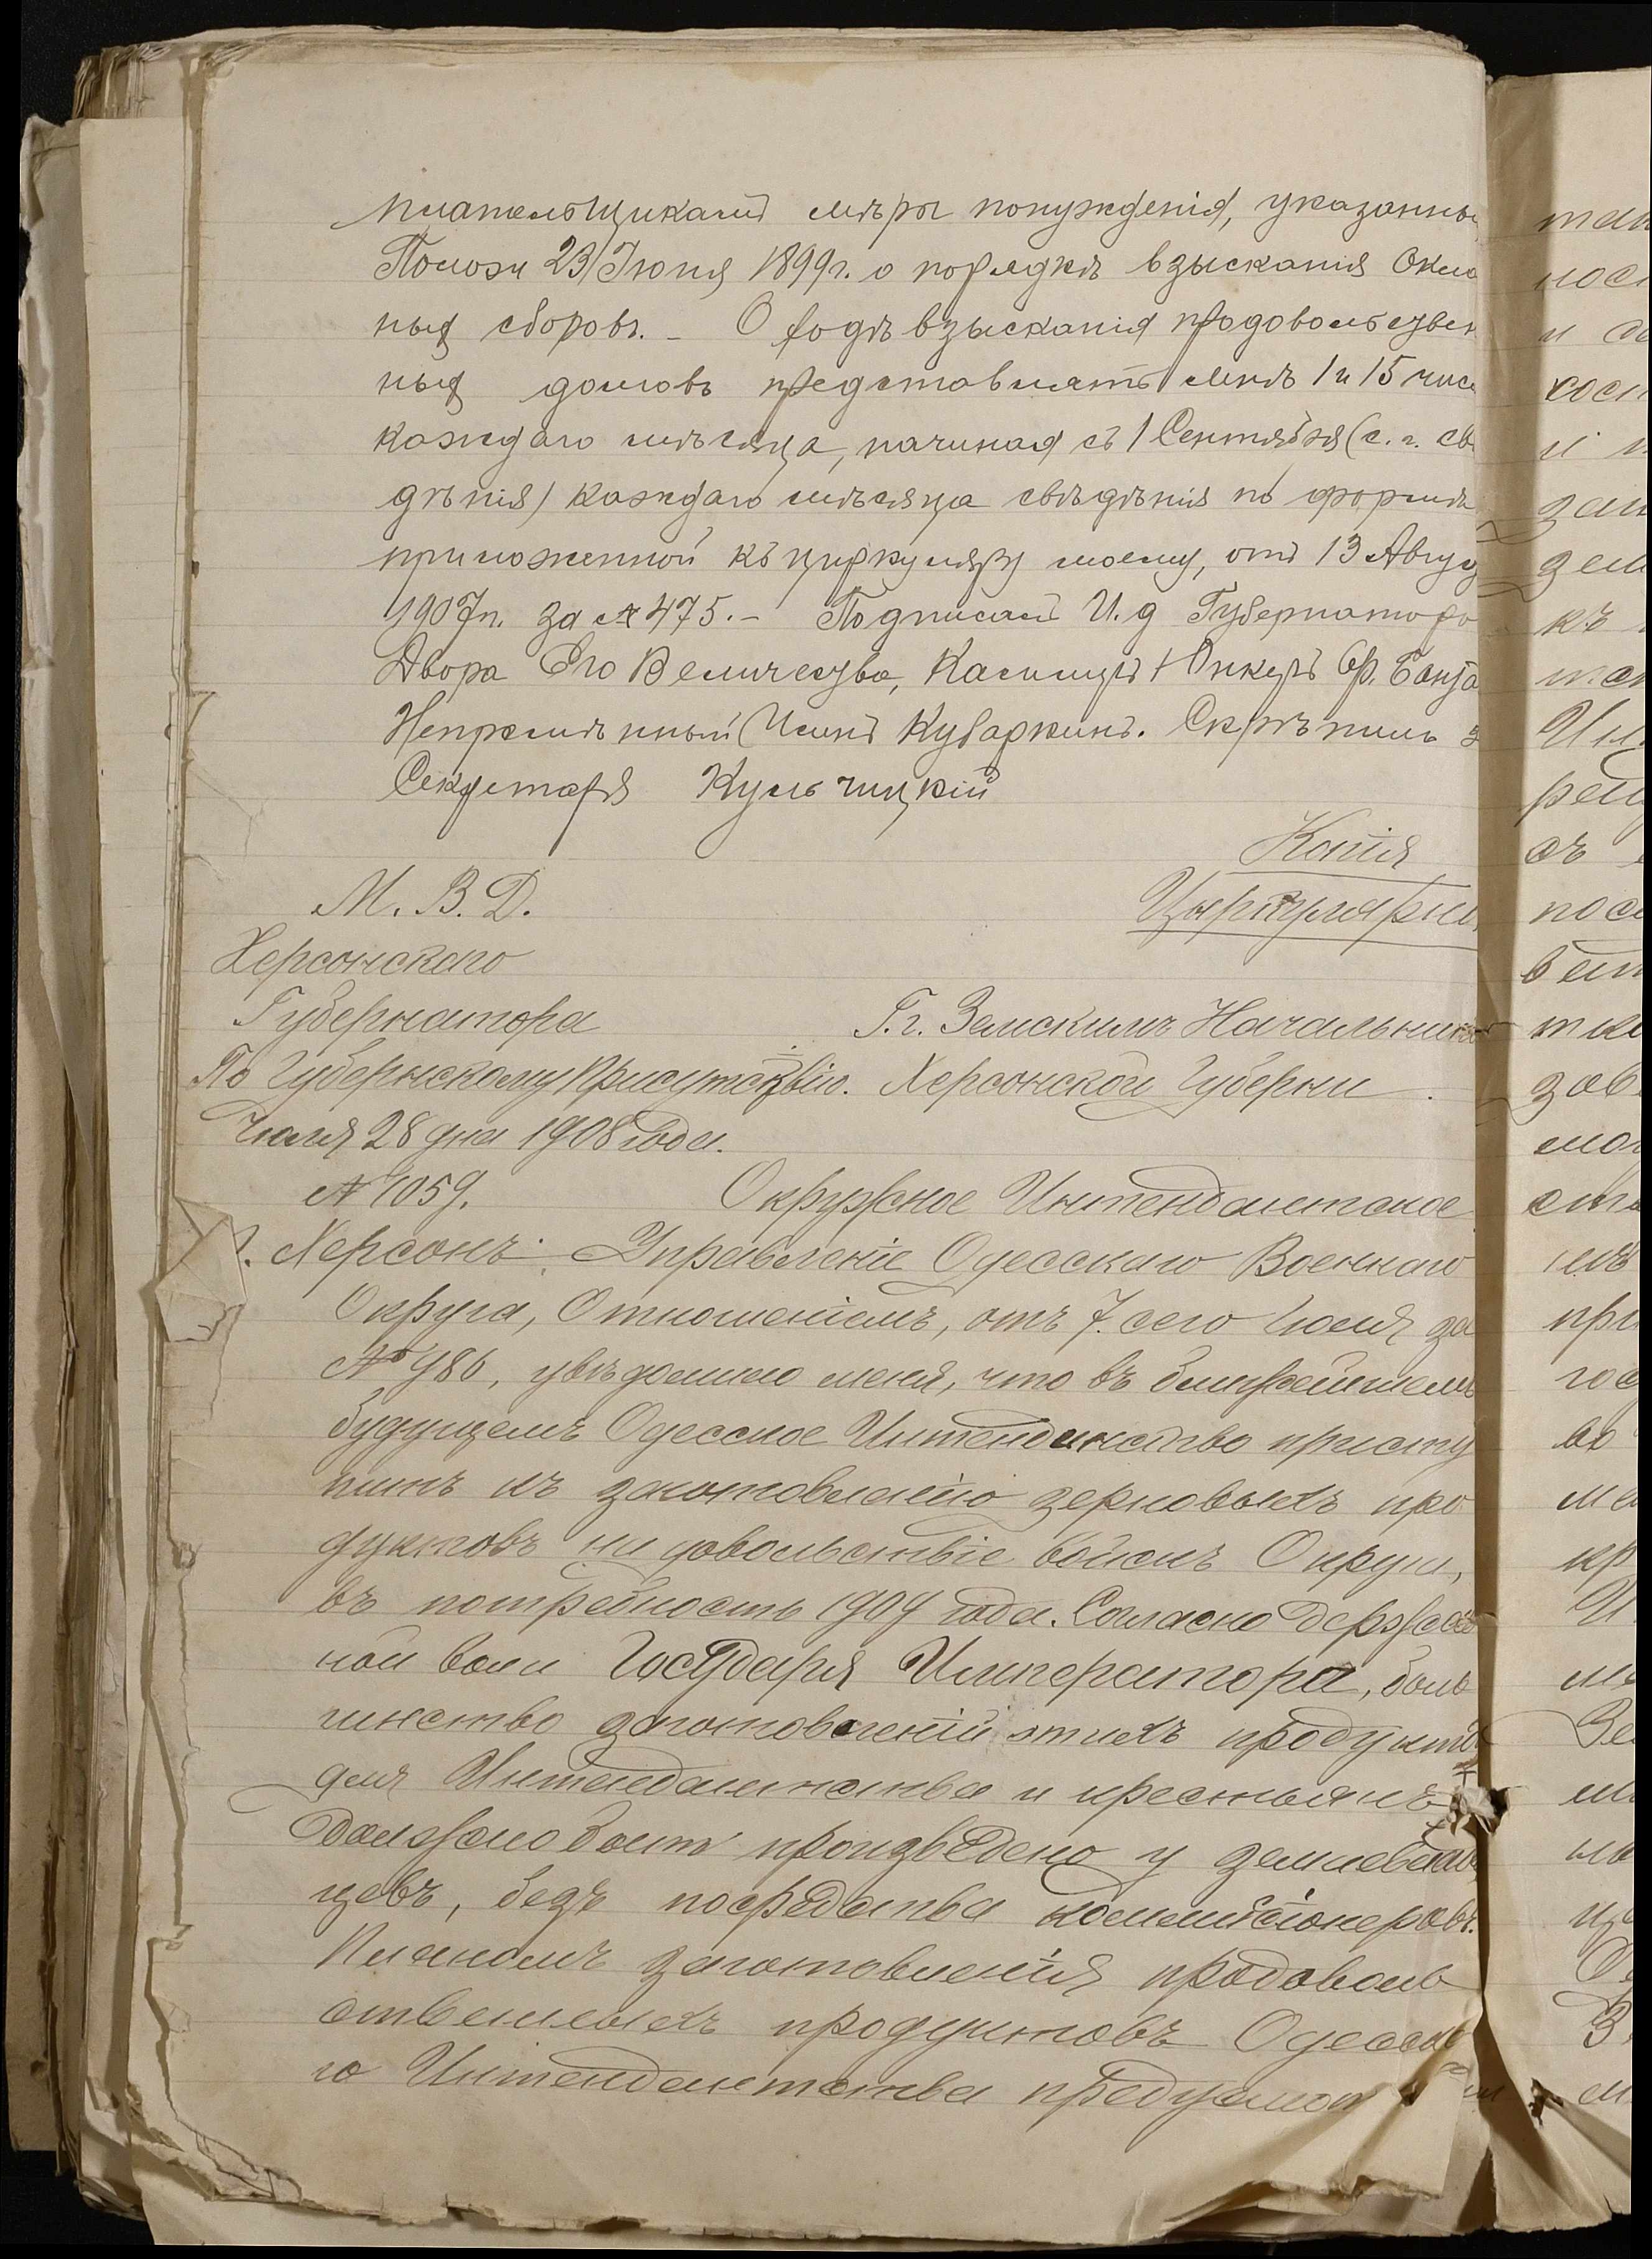 плательщикамъ мѣры понужденія, указанны
Полож 23 Іюня 1899г. о порядкѣ взысканія Окла
ныхъ сборовъ. - О ходѣ взысканія продовольствен
ныхъ долговъ представлять мнѣ 1 и 15 чис
каждаго мѣсяца, начиная съ 1 Сентября (с. г. свѣ
дѣнія) каждаго мѣсяца свѣдѣнія по формѣ
приложенной къ циркуляру моему, отъ 13 Авгус
1907г. за № 475. - Подписалъ И. д Губернатора
Двора Его Величества, Камеръ Юнкеръ Гр.
Непремѣнный Членъ Кубаркинъ. Скрѣпилъ з
Секретаря Кульчицкій
Копія
М. В. Д.
Циркулярно
Херсонскаго
Губернатора
Г.г. Земскимъ Начальника
По Губернскому Присутствію.
Херсонской Губерни
Іюля 28 дня 1908 года.
№ 1059.
Окружное Интендантское
г. Херсонъ.
Управленіе Одесскаго Военнаго
Округа, Отношеніемъ, отъ 7. сего Іюля за
№ 986, увѣдомило меня, что въ ближайшемъ
будущемъ Одесское Интендантство присту
питъ къ заготовленію зерновыхъ про
дуктовъ на довольствіе войскъ Округа,
въ потребность 1909 года. Согласно Держав
ной воли Государя Императора, боль
шинство заготовленій этихъ продуктов
для Интендантства и крестьянъ
должно быть произведено у землевладѣ
цевъ, безъ посредства коммисіонеровъ.
Планомъ заготовленія продоволь
ственныхъ продуктовъ Одесска
го Интендантства предусмот